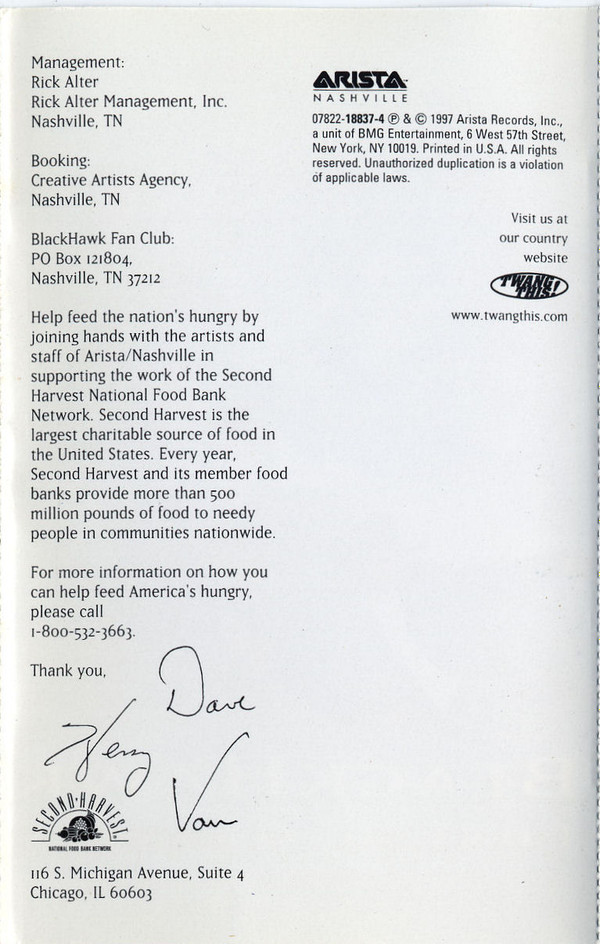 Management:
Rick Alter
Rick Alter Management, Inc.
Nashville, TN
Booking:
Creative Artists Agency,
Nashville, TN
BlackHawk Fan Club:
PO Box 121804,
Nashville, TN 37212
Help feed the nation's hungry by
joining hands with the artists and
staff of Arista/Nashville in
supporting the work of the Second
Harvest National Food Bank
Network. Second Harvest is the
largest charitable source of food in
the United States. Every year,
Second Harvest and its member food
banks provide more than 500
million pounds of food to needy
people in communities nationwide.
For more information on how you
can help feed America's hungry,
please call
1-800-532-3663.
Thank you,
Dave
Henry
Van
SECOND·HARVEST®
NATIONAL FOOD BANK NETWORK
116 S. Michigan Avenue, Suite 4
Chicago, IL 60603
ARISTA
NASHVILLE
07822-18837-4 ℗ & © 1997 Arista Records, Inc.,
a unit of BMG Entertainment, 6 West 57th Street,
New York, NY 10019. Printed in U.S.A. All rights
reserved. Unauthorized duplication is a violation
of applicable laws.
Visit us at
our country
website
TWANG
THIS!
www.twangthis.com